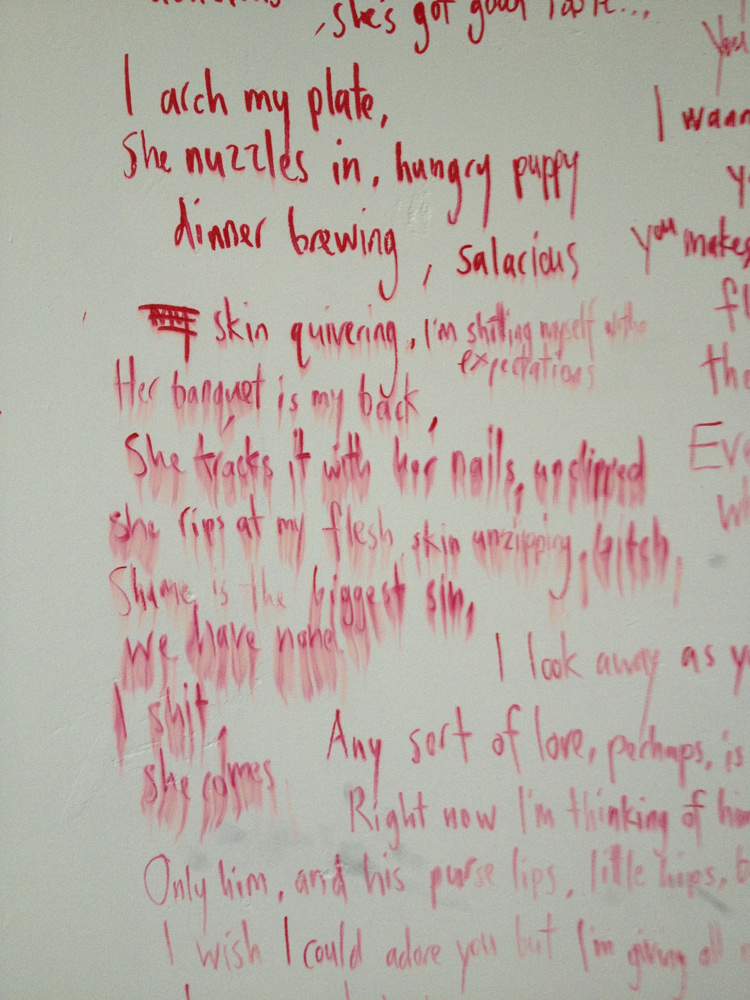 , she's got good taste...
You
I arch my plate,
I wann
She nuzzles in, hungry puppy
y
dinner brewing, salacious
you makes
skin quivering, I'm shitting myself with
expectations
fl
Her banquet is my back,
the
She tracks it with her nails, unclipped
Eve
she rips at my flesh, skin unzipping, bitch,
w
Shame is the biggest sin,
we have none.
I look away as y
I shit,
she comes
Any sort of love, perhaps, is
Right now I'm thinking of him
Only him, and his purse lips, little hips, b
I wish I could adore you but I'm giving all